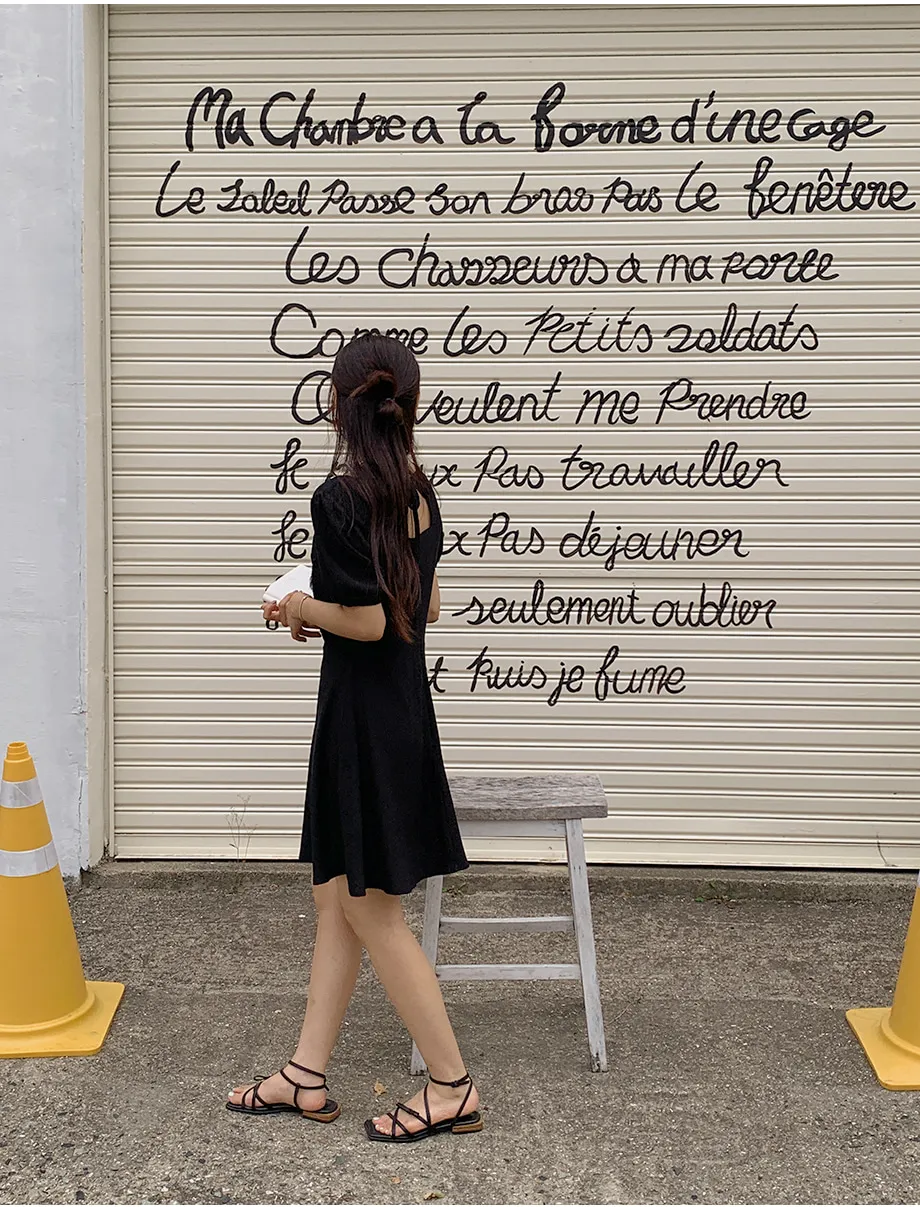 Ma Chambre a la forme d'une cage
Le Soleil Passe son bras Par le fenêtere
Les Chasseurs a ma Porte
Comme les Petits soldats
veulent me Prendre
Je Pas travailler
Je Pas déjeuner
seulement oublier
Puis je fume